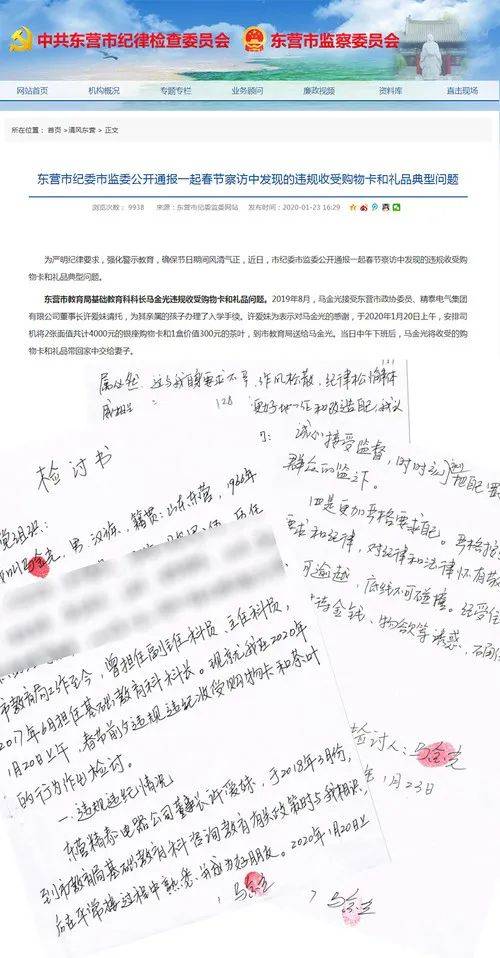 中共东营市纪律检查委员会 东营市监察委员会
网站首页 机构概况 专题专栏 业务顾问 廉政视频 资料库 直击现场
所在位置： 首页 >清风东营 > 正文
东营市纪委市监委公开通报一起春节察访中发现的违规收受购物卡和礼品典型问题
浏览次数： 9938 来源：东营市纪委监委网站 发布时间：2020-01-23 16:29
为严明纪律要求，强化警示教育，确保节日期间风清气正，近日，市纪委市监委公开通报一起春节察访中发现的违规收受购
物卡和礼品典型问题。
东营市教育局基础教育科科长马金光违规收受购物卡和礼品问题。2019年8月，马金光接受东营市政协委员、精泰电气集团
有限公司董事长许爱妹请托，为其亲属的孩子办理了入学手续。许爱妹为表示对马金光的感谢，于2020年1月20日上午，安排司
机将2张面值共计4000元的银座购物卡和1盒价值300元的茶叶，到市教育局送给马金光。当日中午下班后，马金光将收受的购
物卡和礼品带回家中交给妻子。
这与我自身要求不严，作风松散，纪律松
128
诚心接受监督，时时刻刻把
群众的监
四是更加严格要求自己。严格
和纪律，对纪律和法律怀有敬
可逾越，底线不可碰撞。经受住
金钱、物欲等诱惑，
检讨书
党组织：
马金光，男，汉族，籍贯：山东东营，1966
市教育局工作至今，曾担任副主任科员、主任科员，
2017年6月担任基础教育科科长。现就我在2020年
1月20日上午，春节前夕违规违纪收受购物卡和茶叶
的行为作出检讨。
一、违规违纪情况
东营精泰电器公司董事长许爱妹，于2018年3月份，
到市教育局基础教育科咨询教育有关政策时与我相识，
后在平常接
成为好朋友。2020年1月20日上
检讨人：马金光
1月23日
马金光
马金光